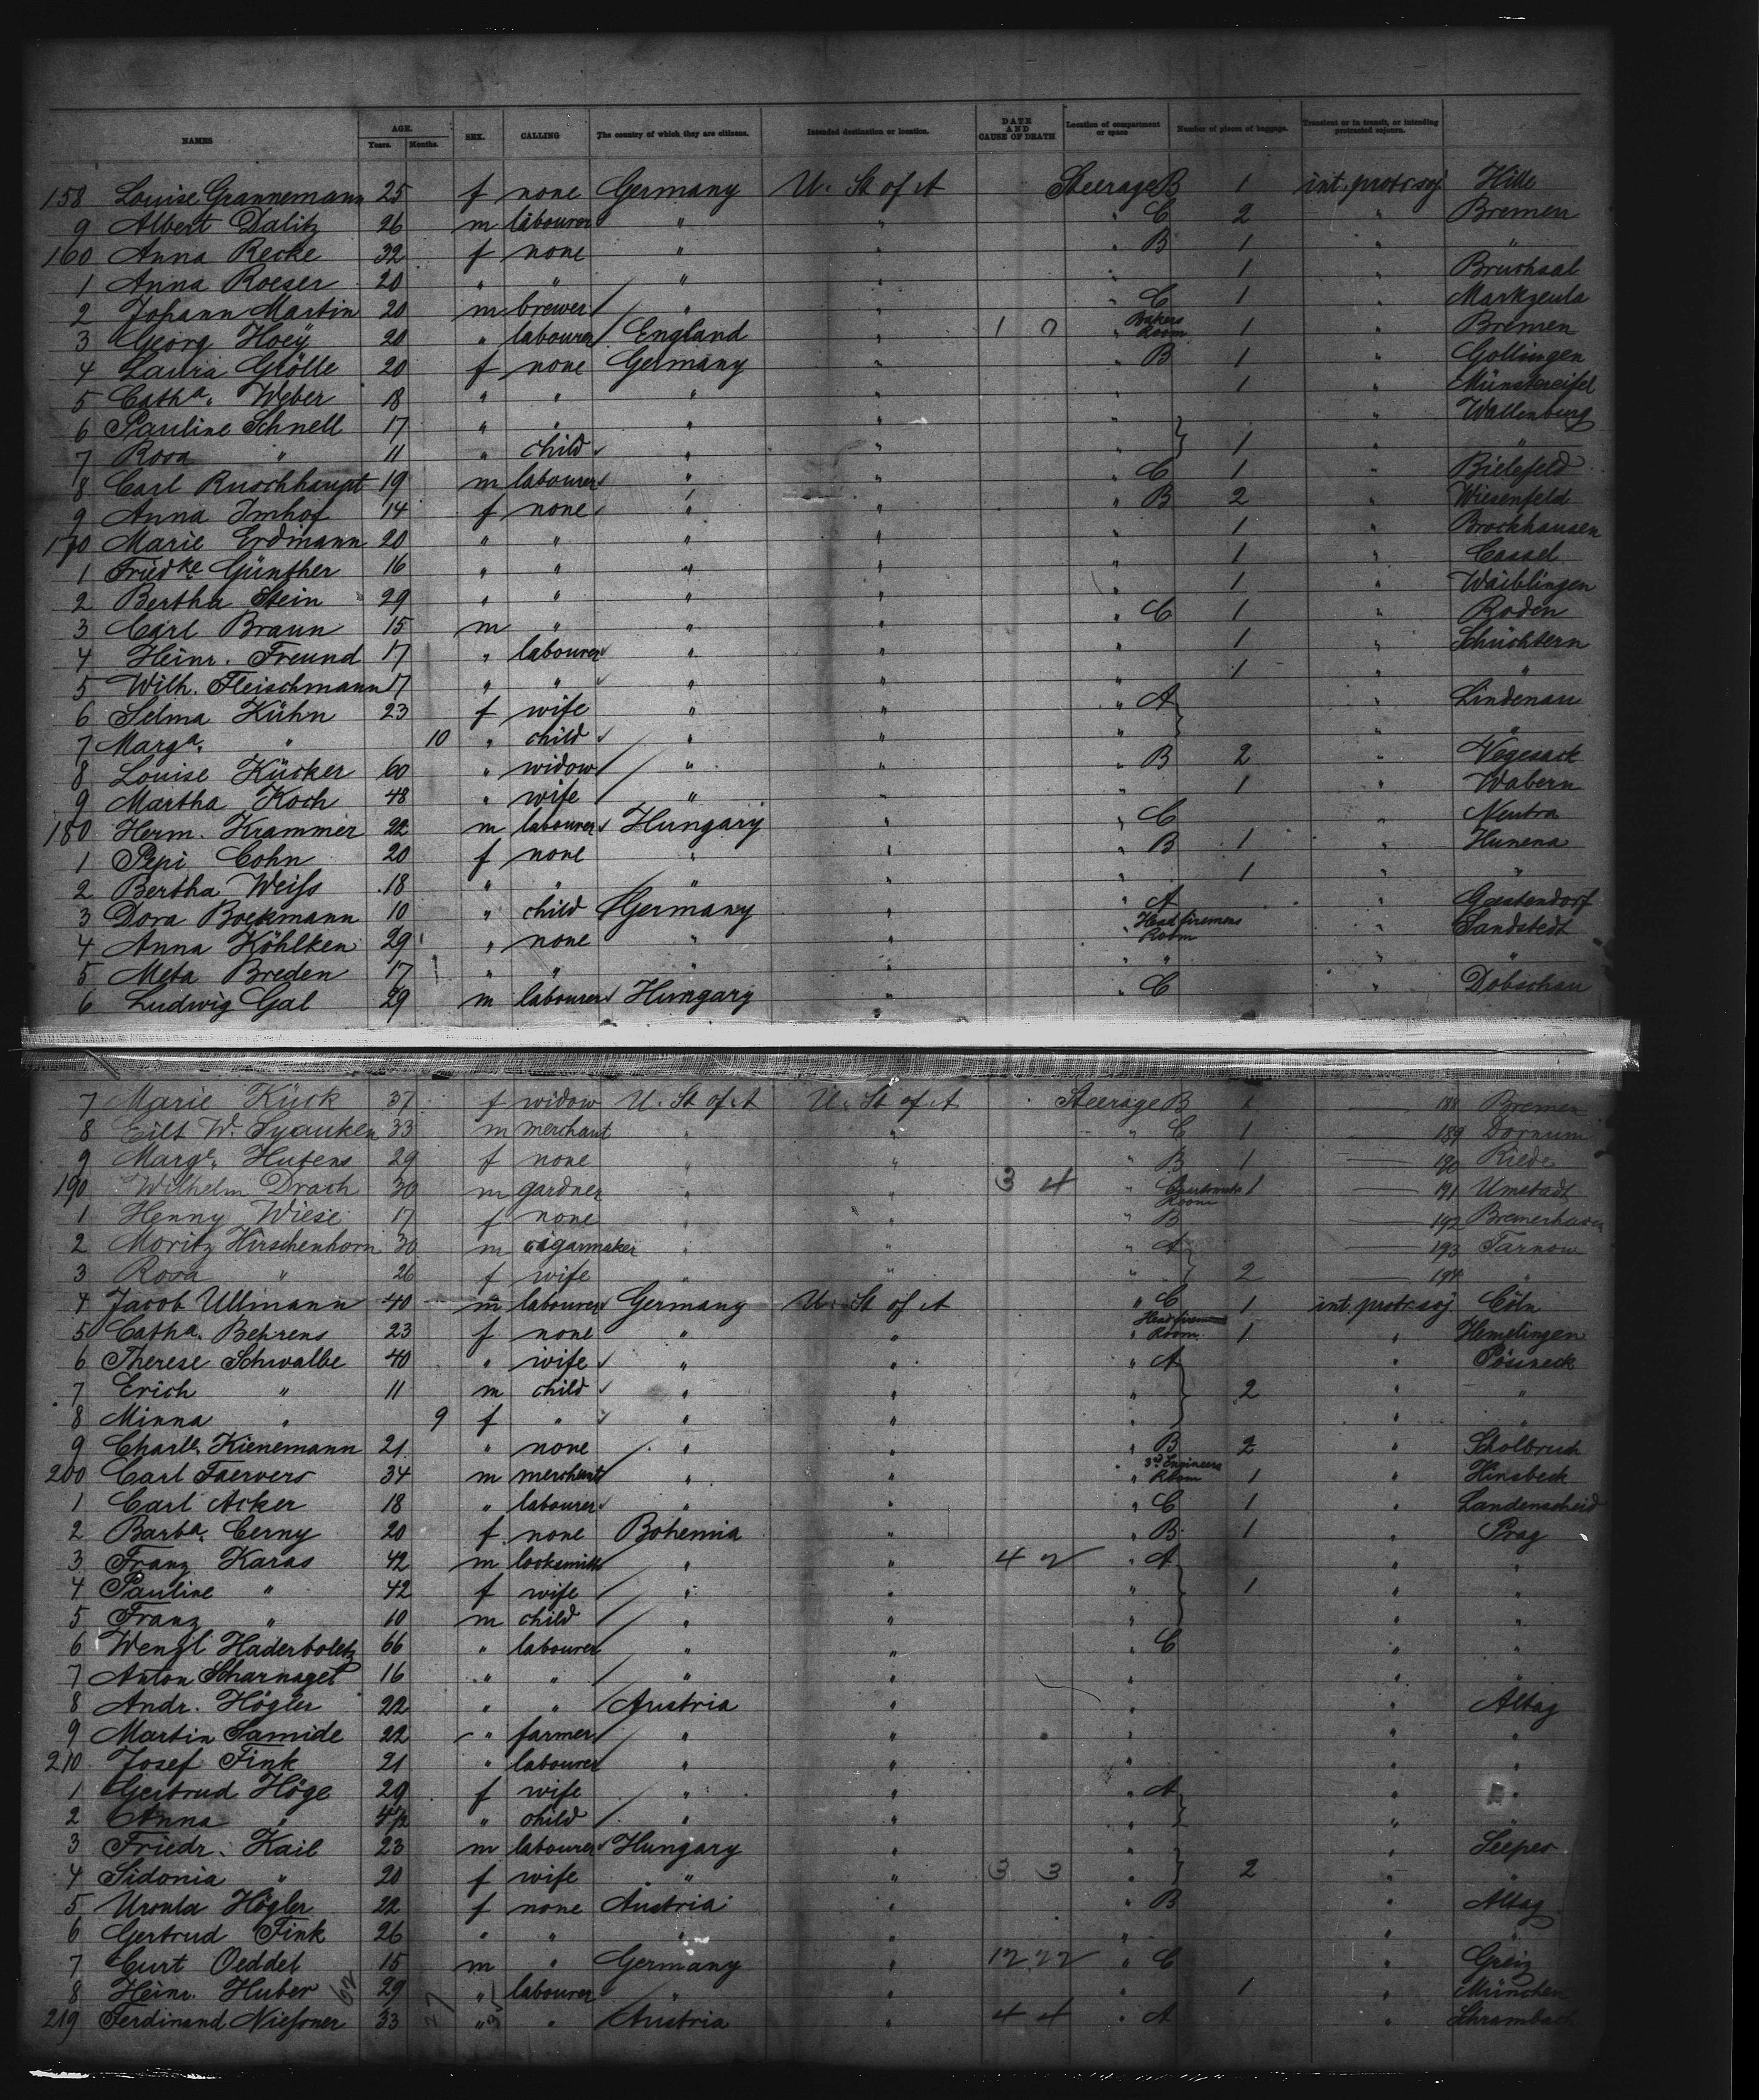 NAMES AGE. Years. Months. SEX. CALLING The country of which they are citizens. Intended destination or location. DATE AND CAUSE OF DEATH Location of compartment or space Number of pieces of baggage. Transient or in transit, or intending protracted sojourn.
158 Louise Grannemann 25 f none Germany U. St of A Steerage B 1 int. protr. soj. Hille
9 Albert Dalitz 26 m labourer " " " C 2 " Bremen
160 Anna Recke 32 f none " " " B 1 " "
1 Anna Roeser 20 " " " " " 1 " Bruchsal
2 Johann Martin 20 m brewer " " " C 1 " Markzeuln
3 Georg Hoeÿ 20 " labourer England " 1 0 " Bakers Room 1 " Bremen
4 Laura Grölle 20 f none Germany " " B 1 " Gollingen
5 Cath^a. Weber 18 " " " " " 1 " Münstereifel
6 Pauline Schnell 17 " " " " " " Wallenburg
7 Rosa " 11 " child " " " 1 " "
8 Carl Ruschhaupt 19 m labourer " " " C 1 " Bielefeld
9 Anna Imhof 14 f none " " " B 2 " Wiesenfeld
170 Marie Erdmann 20 " " " " " 1 " Brockhausen
1 Fried^ke Günther 16 " " " " " 1 " Cassel
2 Bertha Stein 29 " " " " " 1 " Waiblingen
3 Carl Braun 15 m " " " " C 1 " Roden
4 Heinr. Freund 17 " labourer " " " 1 " Schüchtern
5 Wilh. Fleischmann 17 " " " " " 1 " "
6 Selma Kühn 23 f wife " " " A " Lindenau
7 Marg^a. " 10 " child " " " " "
8 Louise Kücker 60 " widow " " " B 2 " Vegesack
9 Martha Koch 48 " wife " " " 1 " Wabern
180 Herm. Krammer 22 m labourer Hungary " " C " Neutra
1 Pepi Cohn 20 f none " " " B 1 " Hunena
2 Bertha Weiss 18 " " " " " 1 " "
3 Dora Boekmann 10 " child Germany " " A " Gastendorf
4 Anna Köhlken 29 " none " " Head firemens Room " Sandstedt
5 Meta Breden 17 " " " " " " " "
6 Ludwig Gal 29 m labourer Hungary " " C " Dobschau
7 Marie Kück 37 f widow U. St of A U. St of A Steerage B 1 — 188 Bremen
8 Eilt W. 33 m merchant " " " C 1 — 189 Dornum
9 Marg^e. Hutens 29 f none " " " B 1 — 190 Riede
190 Wilhelm Drach 30 m gardner " " 3 4 " Room 1 — 191 Umstadt
1 Henny Wiese 17 f none " " " B — 192 Bremerhaven
2 Moritz Hirschenhorn 30 m cigarmaker " " " A — 193 Tarnow
3 Rosa " 26 f wife " " " 2 — 194 "
4 Jacob Ullmann 40 m labourer Germany U. St of A " C 1 int. protr. soj Cöln
5 Cath^a. Behrens 23 f none " " " Head firemens Room 1 " Hemelingen
6 Therese Schwalbe 40 " wife " " " A " Pösneck
7 Erich " 11 m child " " " 2 " "
8 Minna " 9 f " " " " " "
9 Charl^e. Kienemann 21 " none " " " B 2 " Scholbruch
200 Carl Faervers 34 m merchant " " " 3^d Engineers Room 1 " Hinsbeck
1 Carl Acker 18 " labourer " " " C 1 " Landenscheid
2 Barb^a. Cerny 20 f none Bohemia " " B 1 " Prag
3 Franz Karas 42 m locksmith " " 4 2 " A " "
4 Pauline " 42 f wife " " " 1 " "
5 Franz " 10 m child " " " " "
6 Wenzl Haderboletz 66 " labourer " " " C " "
7 Anton Scharnagel 16 " " " " " " "
8 Andr. Högler 22 " " Austria " " " Altag
9 Martin Samide 22 " farmer " " " " "
210 Josef Fink 21 " labourer " " " " "
1 Gertrud Höge 29 f wife " " " A " "
2 Anna " 4/2 " child " " " " "
3 Friedr. Kail 23 m labourer Hungary " " " Seeper
4 Sidonia " 20 f wife " " 3 3 " 2 " "
5 Ursula Högler 22 f none Austria " " B " Altag
6 Gertrud Fink 26 " " " " " " "
7 Curt Oeddel 15 m " Germany " 12 22 " C " Greiz
8 Heinr. Huber 29 " labourer " " " 1 " München
219 Ferdinand Niessner 33 " " Austria " 4 4 " A " Schrambach